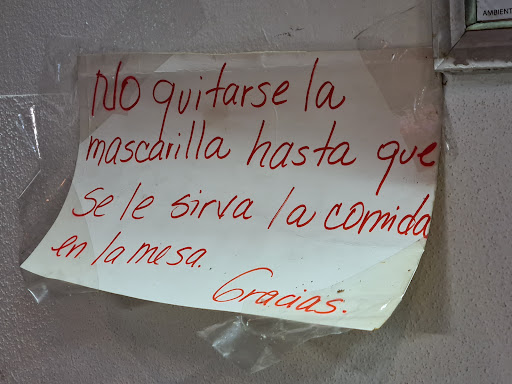 AMBIENT
No quitarse la
mascarilla hasta que
se le sirva la comida
en la mesa.
Gracias.